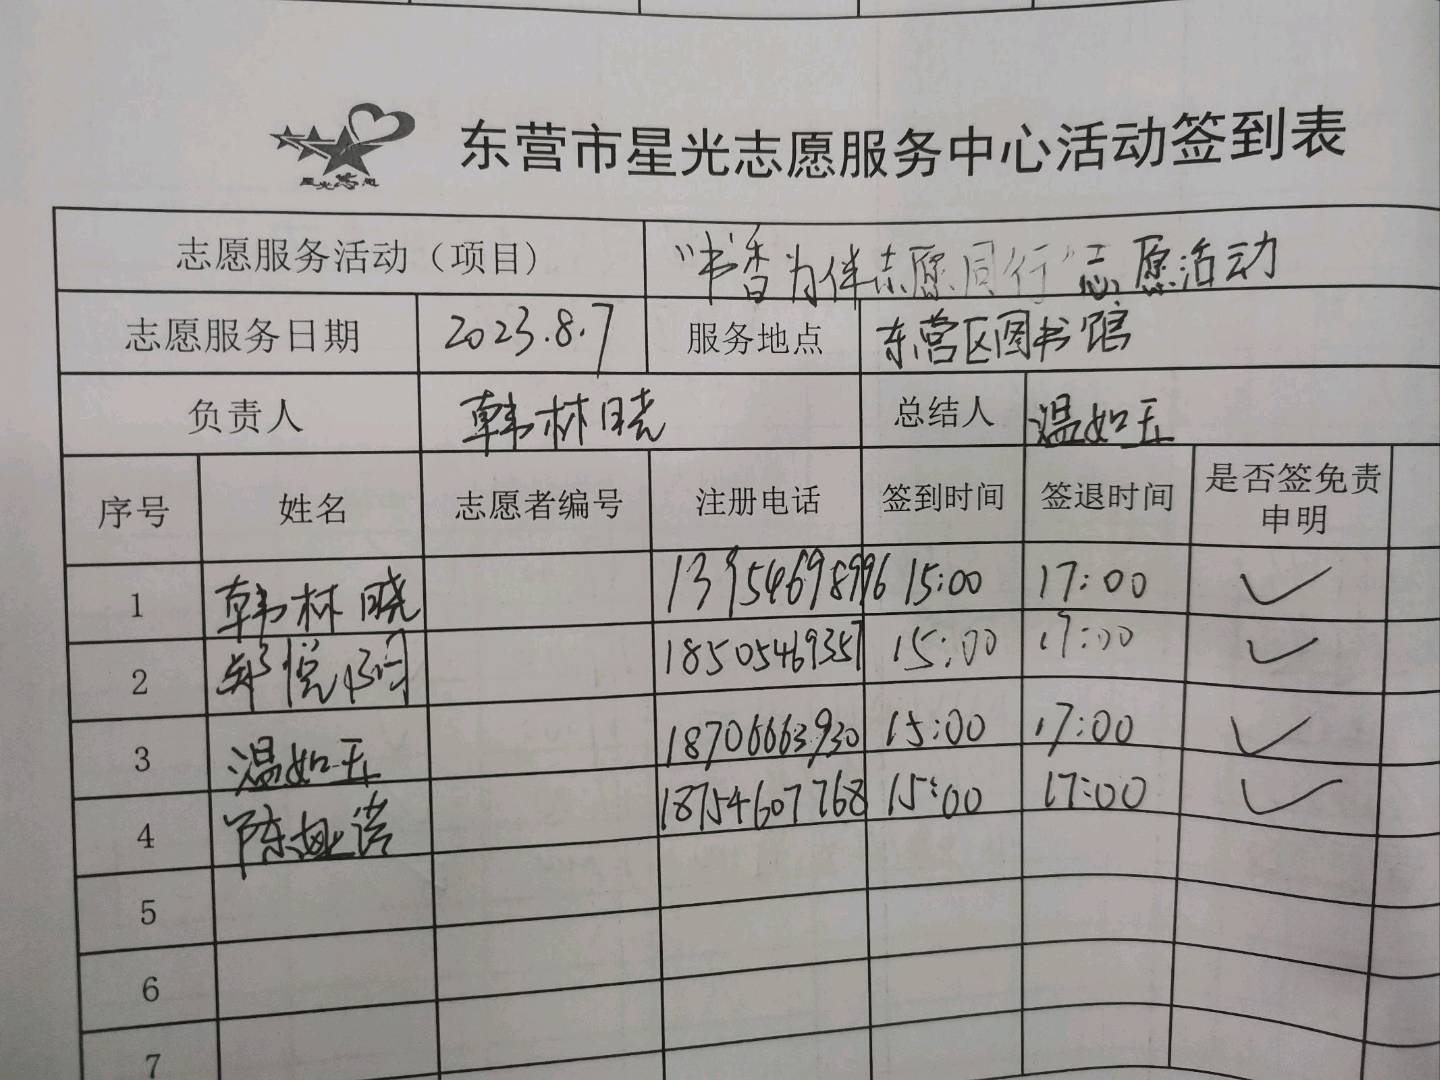 星光志愿
东营市星光志愿服务中心活动签到表
志愿服务活动（项目） “书香为伴志愿同行”志愿活动
志愿服务日期 2023.8.7 服务地点 东营区图书馆
负责人 韩林晓 总结人 温如玉
序号 姓名 志愿者编号 注册电话 签到时间 签退时间 是否签免责申明
1 韩林晓 13954698996 15:00 17:00 ✓
2 郑悦 18505469357 15:00 17:00 ✓
3 温如玉 18706663930 15:00 17:00 ✓
4 陈 诺 18754607768 15:00 17:00 ✓
5
6
7